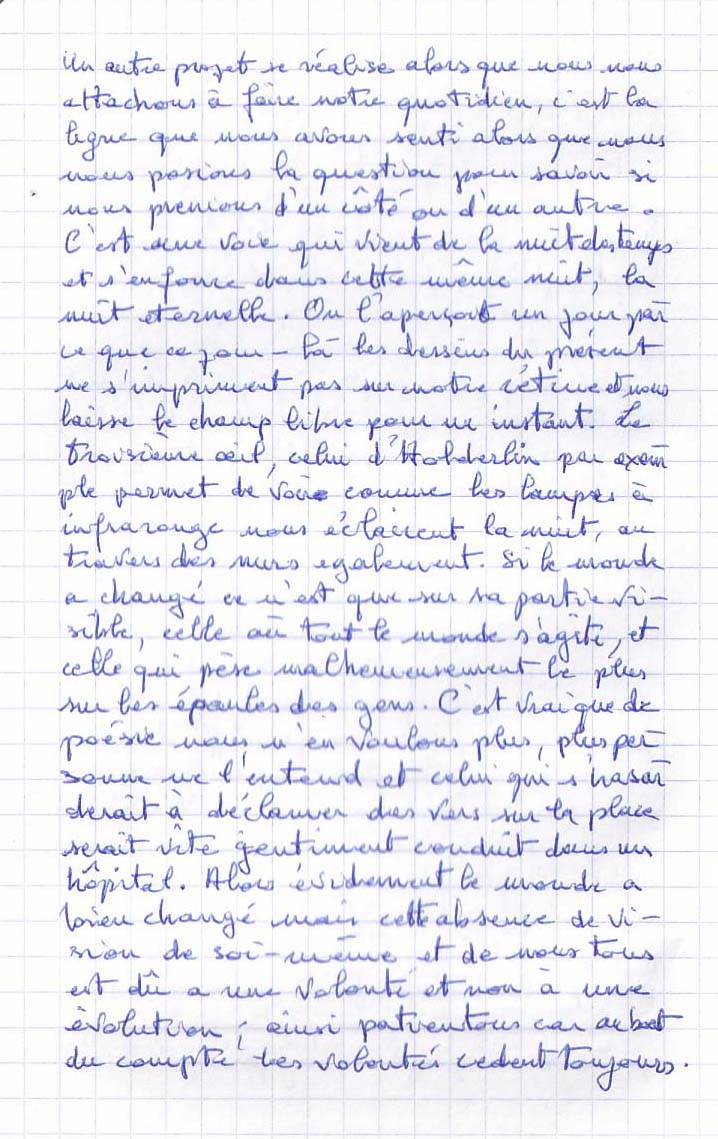 Un autre projet se réalise alors que nous nous
attachons à faire notre quotidien, c'est la
ligne que nous avons senti alors que nous
nous posions la question pour savoir si
nous prenions d'un côté ou d'un autre.
C'est une voie qui vient de la nuit des temps
et s'enfonce dans cette même nuit, la
nuit eternelle. On l'aperçoit un jour par
ce que ce jour-là les dessins du présent
ne s'impriment pas sur notre rétine et nous
laisse le champ libre pour un instant. Le
troisième œil, celui d'Holderlin par exem
ple permet de voir comme les lampes à
infrarouge nous éclairent la nuit, au
travers des murs egalement. Si le monde
a changé ce n'est que sur sa partie vi-
sible, celle où tout le monde s'agite, et
celle qui pèse malheureusement le plus
sur les épaules des gens. C'est vrai que de
poésie nous n'en voulons plus, plus per
sonne ne l'entend et celui qui s'hasar
derait à déclamer des vers sur la place
serait vite gentiment conduit dans un
hôpital. Alors évidemment le monde a
bien changé mais cette absence de vi-
sion de soi-même et de nous tous
est dû a une volonté et non à une
évolution ; ainsi patientons car au bout
du compte les volontés cedent toujours.